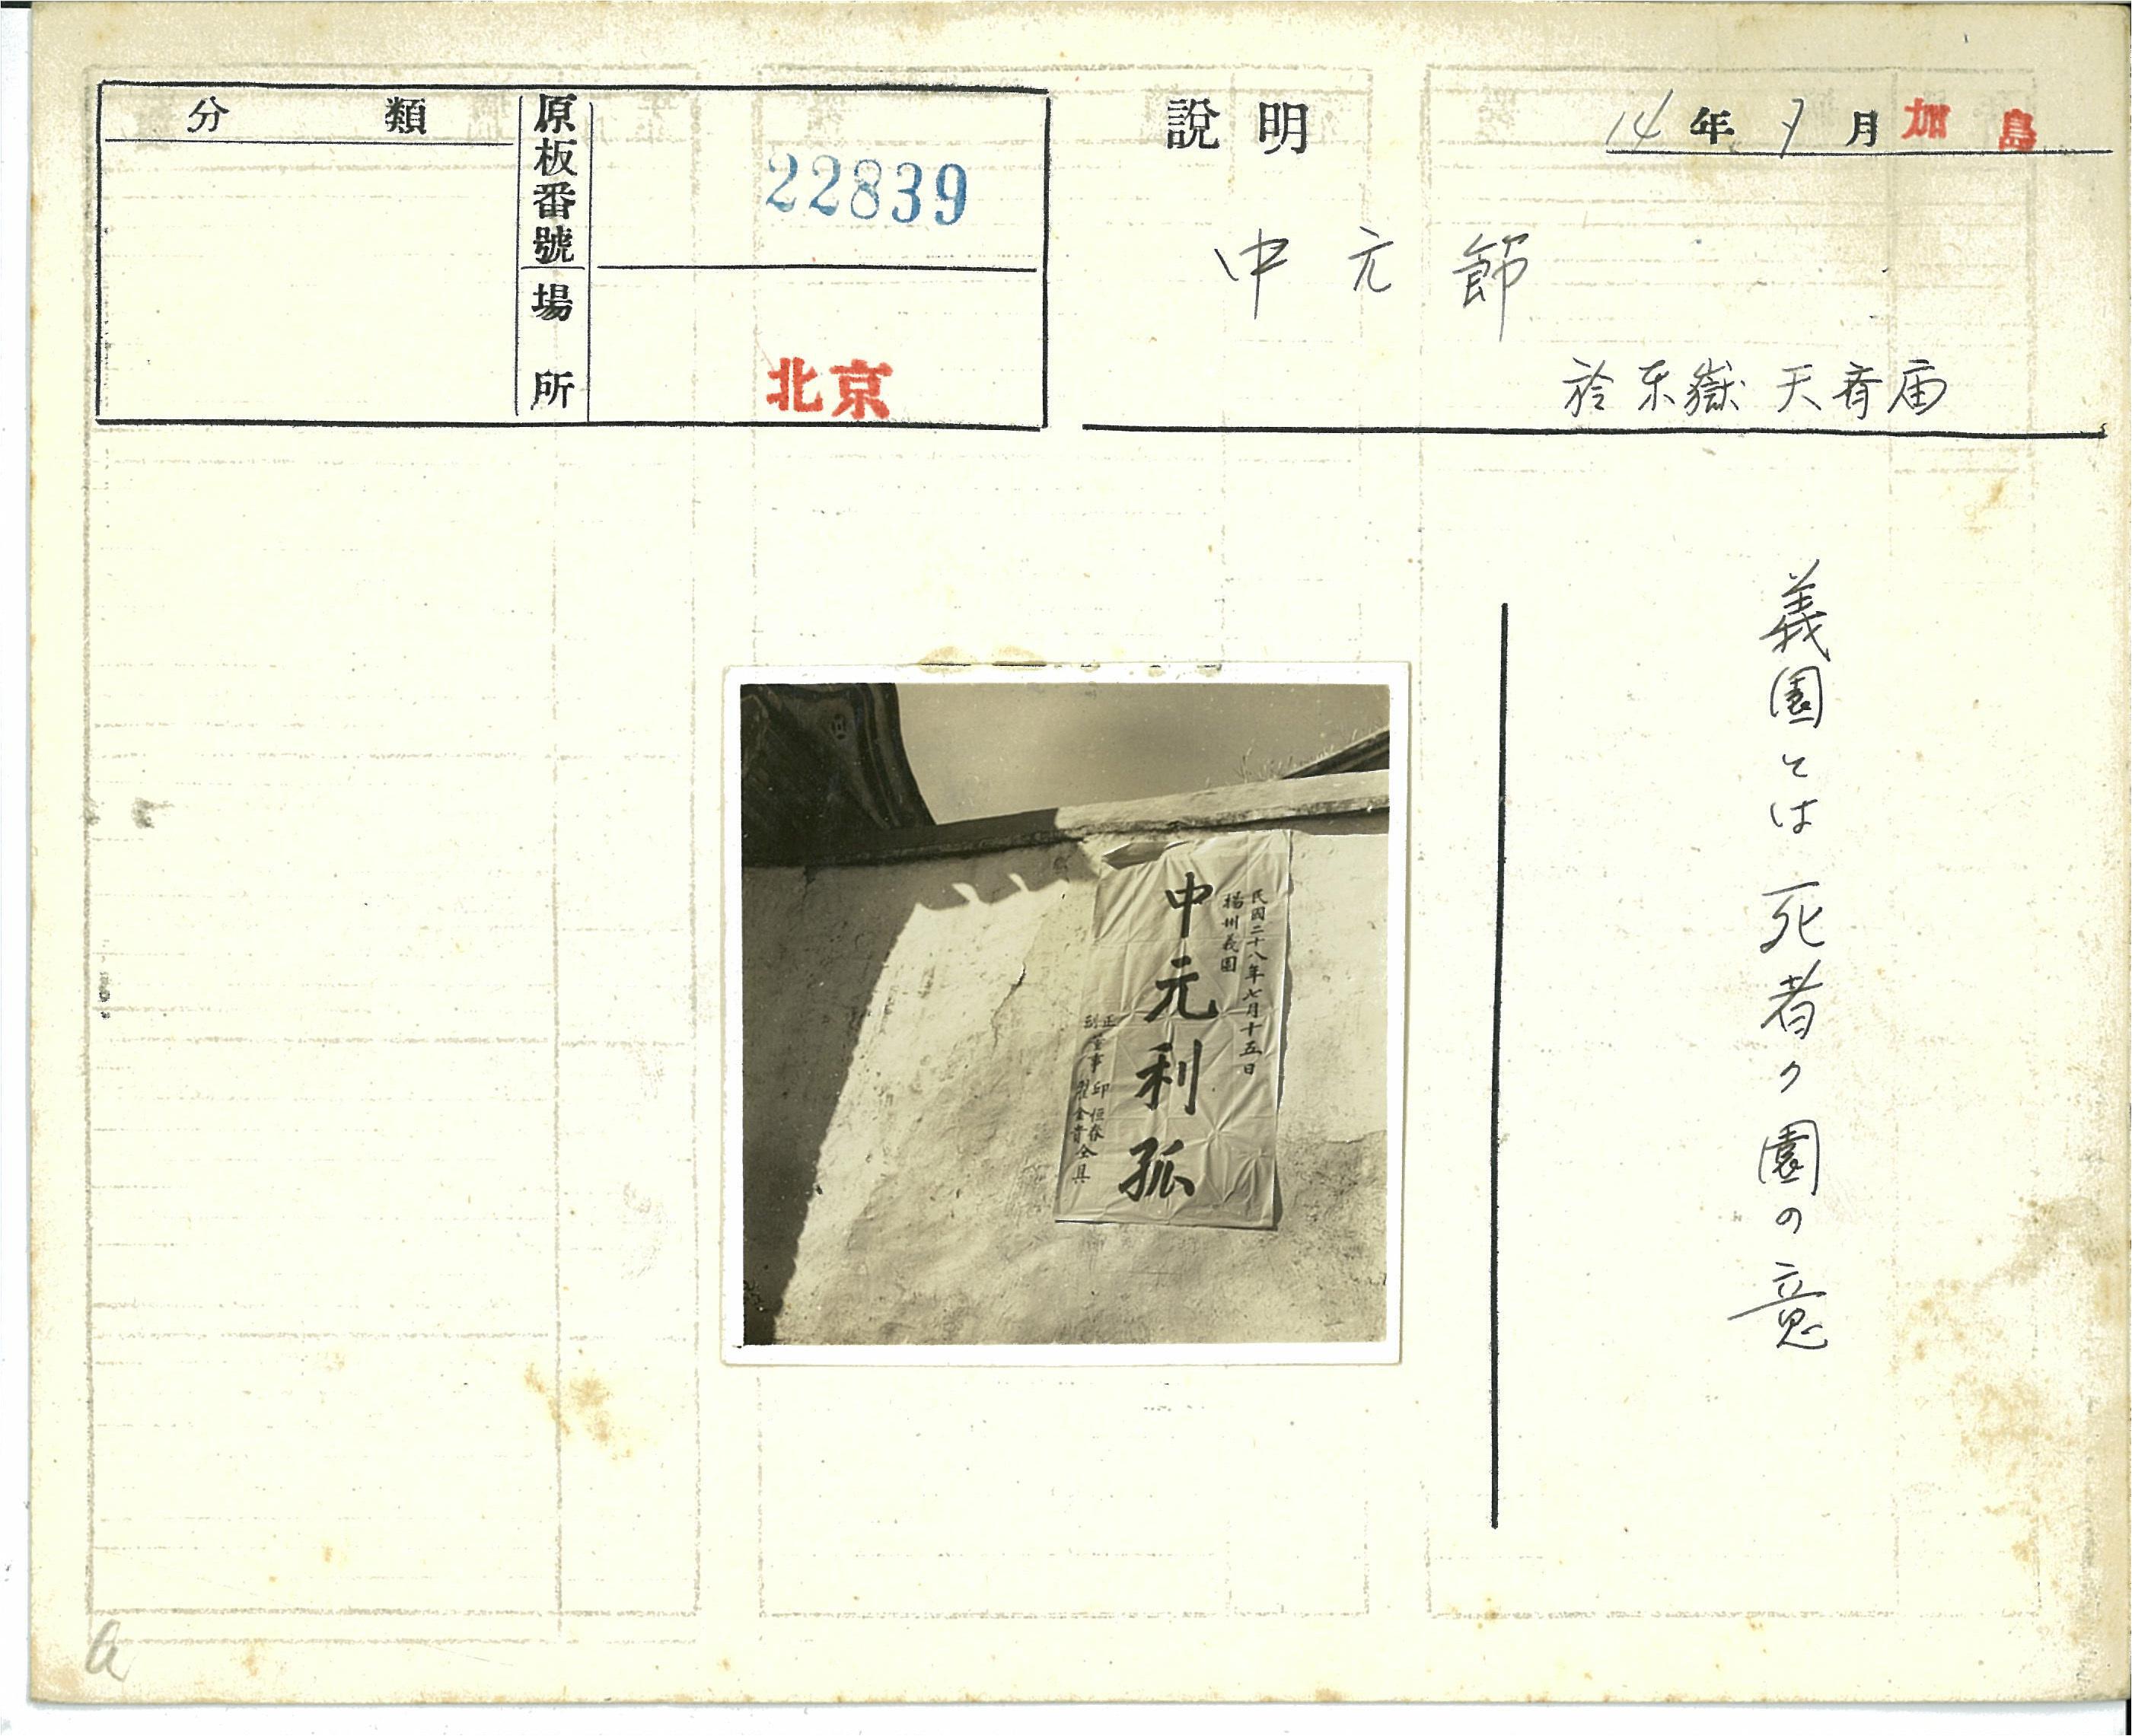 分類
原板番號
22839
場所
北京
說明
14年9月 加島
中元節
於东嶽天斎庙
義園とは死者の園の意
民國二十八年七月十五日
揚州義園
中元利孤
正
副
董事
印恒春
金貴
仝具
a